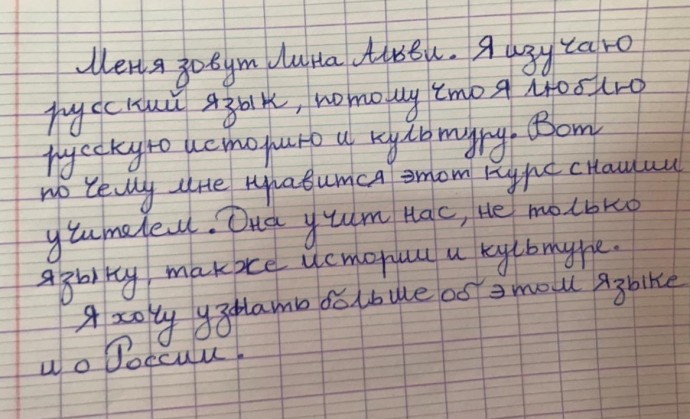 Меня зовут Лина Алви. Я изучаю
русский язык, потому что я люблю
русскую историю и культуру. Вот
по чему мне нравится этот курс с нашим
учителем. Она учит нас, не только
языку, также истории и культуре.
Я хочу узнать больше об этом языке
и о России.